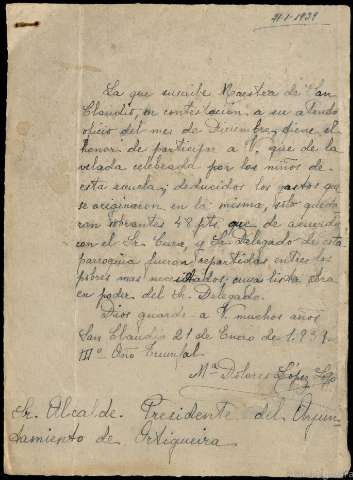 21-1-1939
La que suscribe Maestra de San
Claudio, en contestación a su atento
oficio del mes de Diciembre, tiene el
honor de participar a V. que de la
velada celebrada por los niños de
esta escuela, deducidos los gastos que
se originaron en la misma, solo queda
ron sobrantes 48 pts. que de acuerdo
con el Sr. Cura, y Sr. Delegado de esta
parroquia fueron repartidas entre los
pobres mas necesitados, cuya lista obra
en poder del Sr. Delegado.
Dios guarde a V. muchos años
San Claudio 21 de Enero de 1.939-
IIIº Año Triunfal.
Mª Dolores López
Sr. Alcalde Presidente del Ayun-
tamiento de Ortigueira